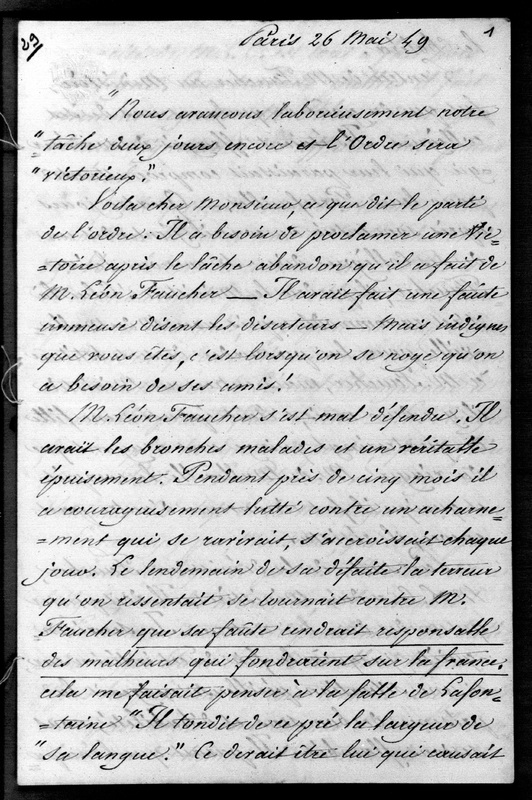 29/
Paris 26 Mai 49
1
"Nous avançons laborieusement notre
"tâche deux jours encore et l'Ordre sera
"victorieux."
Voila cher Monsieur, ce que dit le parti
de l'ordre: Il a besoin de proclamer une Vic-
=toire après le lâche abandon qu'il a fait de
M. Léon Faucher — Il avait fait une faûte
immense disent les déserteurs — Mais indignes
que vous êtes, c'est lorsqu'on se noye qu'on
a besoin de ses amis!
M. Léon Faucher s'est mal défendu. Il
avait les bronches malades et un véritable
épuisement. Pendant près de cinq mois il
a courageusement lutté contre un acharne=
=ment qui se ravivait, s'accroissait chaque
jour. Le lendemain de sa défaite la terreur
qu'on ressentait se tournait contre M.
Faucher que sa faûte rendrait responsable
des malheurs qui fondraient sur la france.
cela me faisait penser à la fable de Lafon-
=taine "Il tondit de ce pré la largeur de
"sa langue." Ce devait être lui qui causait